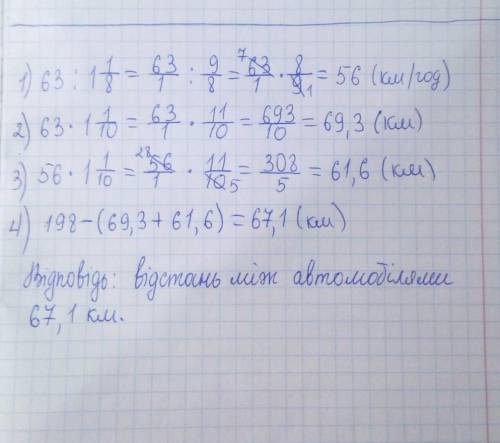 1) 63 : 1 1/8 = 63/1 : 9/8 = 7 63/1 · 8/9 1 = 56 (км/год)
2) 63 · 1 1/10 = 63/1 · 11/10 = 693/10 = 69,3 (км)
3) 56 · 1 1/10 = 28 56/1 · 11/10 5 = 308/5 = 61,6 (км)
4) 198 - (69,3 + 61,6) = 67,1 (км)
Відповідь: відстань між автомобілями
67,1 км.